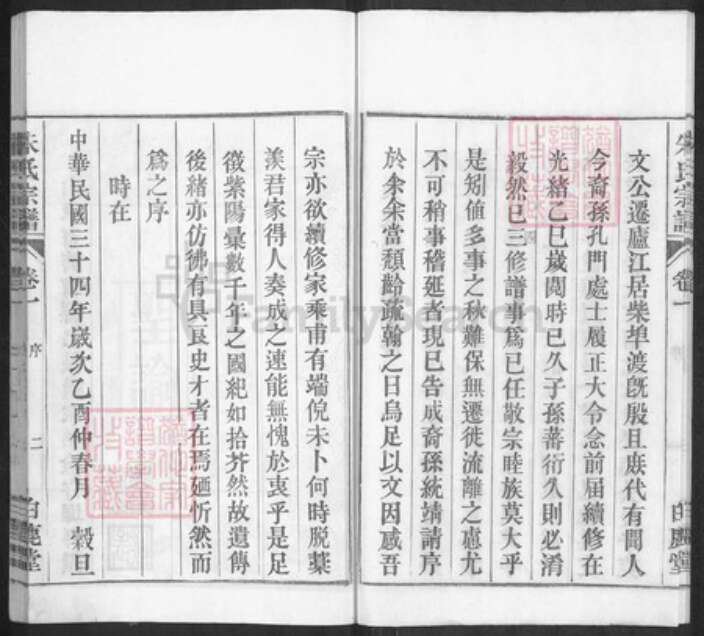 朱氏宗譜
卷一
白鹿堂
文公遷廬江居柴埠渡旣殷且庶代有聞人
今裔孫孔門處士履正大令念前届續修在
光緒乙巳歲閱時已久子孫蕃衍久則必淆
毅然已三修譜事爲已任敬宗睦族莫大乎
是矧值多事之秋難保無遷徙流離之慮尤
不可稍事稽延者現已告成裔孫統靖請序
於余余當頹齡疏翰之日烏足以文因感吾
宗亦欲續修家乘甫有端倪未卜何時脱藁
羨君家得人奏成之速能無愧於衷乎是足
徵紫陽彙數千年之國紀如拾芥然故遺傳
後緒亦仿彿有具良史才者在焉廼忻然而
爲之序
時在
中華民國三十四年歲次乙酉仲春月 穀旦
朱氏宗譜
卷一
序
二
白鹿堂
FamilySearch